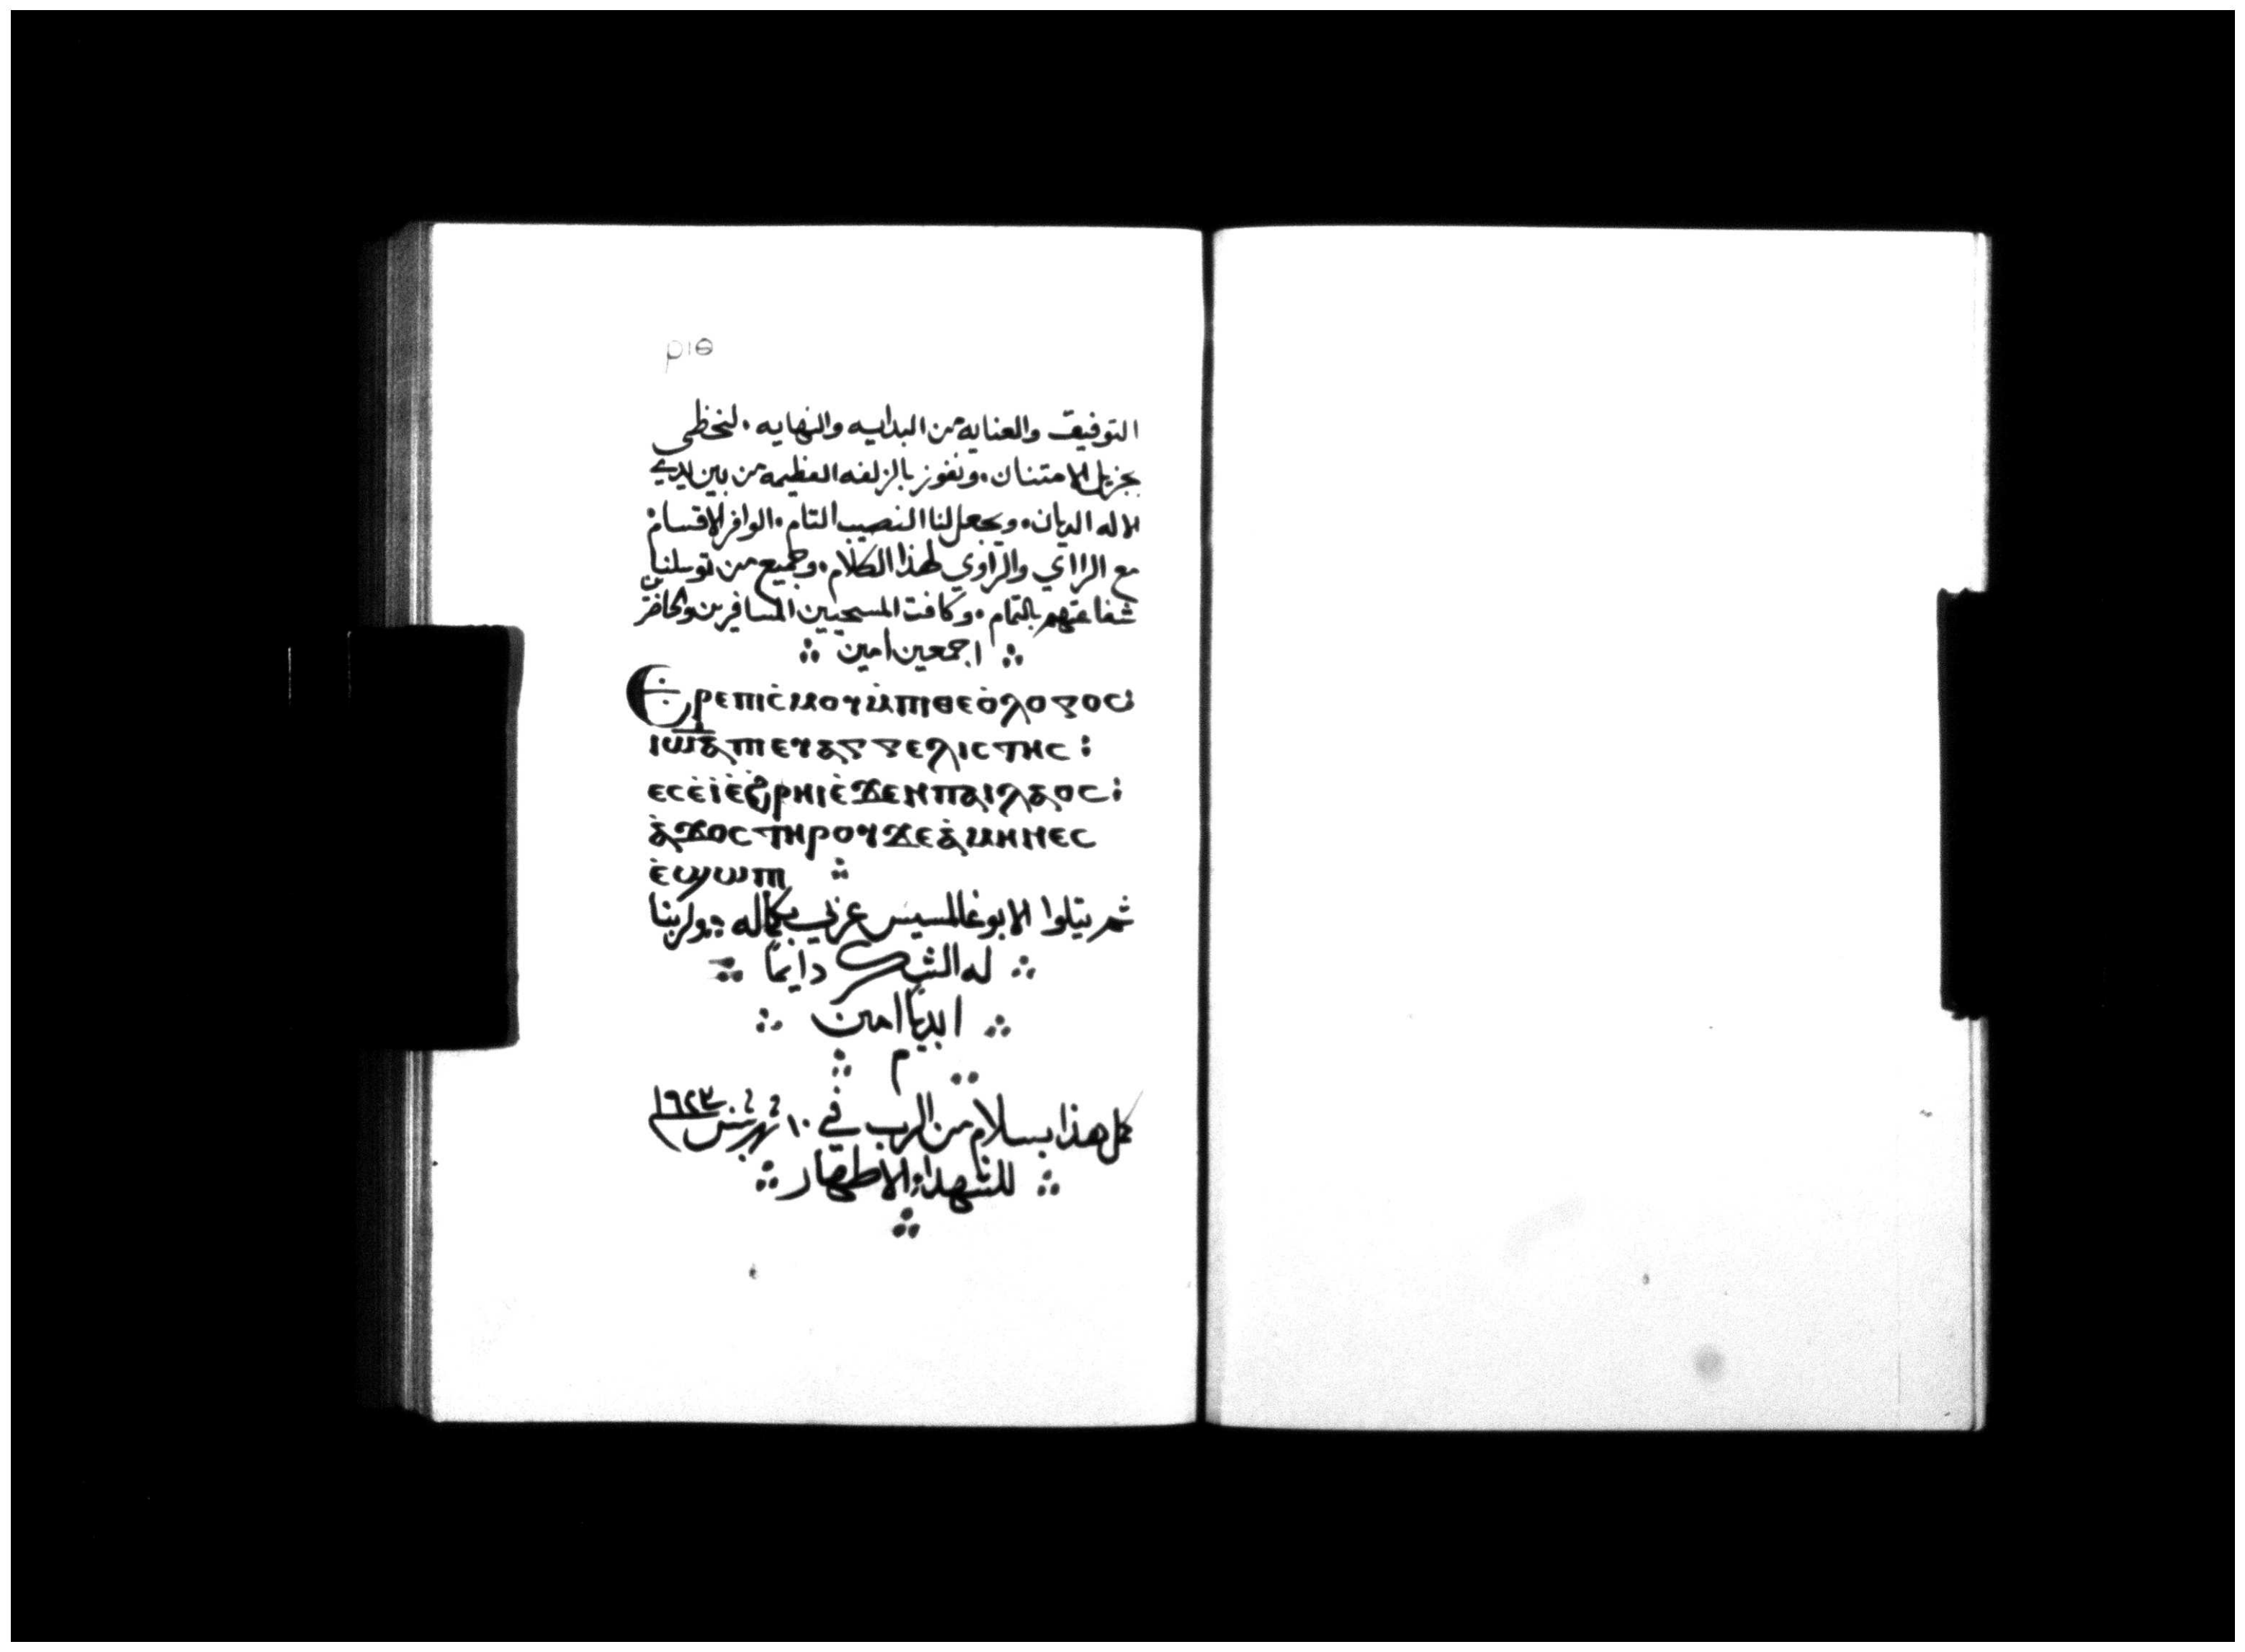 ⲣⲓⲑ
التوفيق والعنايه من البدايه والنهايه. لنحظى
بجزيل الامتنان. ونفوز بالزلفه العظيمه من بين يدي
الاله الديان. ويجعل لنا النصيب التام. الوافر الاقسام
مع الرااي والراوي لهذا الكلام. وجميع من توسلنا
شفاعتهم بالتمام. وكافت المسيحيين المسافرين والحاضرين
اجمعين امين
Ⲉⲣⲉⲡⲓⲥ̀ⲙⲟⲩⲙ̀ⲡⲓⲑⲉⲟ̀ⲗⲟⲅⲟⲥ
ⲓⲱⲁⲡⲓⲉⲩⲁⲅⲅⲉⲗⲓⲥⲧⲏⲥ:
ⲉⲥⲉ̀ⲓ̀ⲉ̀ϩ̀ⲣⲏⲓⲉ̀ϫⲉⲛⲡⲁⲓⲗⲁⲟⲥ:
ⲁ̀ϫⲟⲥⲧⲏⲣⲟⲩϫⲉⲁ̀ⲙⲏⲛⲉⲥ
ⲉ̀ϣⲱⲡⲓ
ثم يتلوا الابوغالمسيس عربي بكماله ولربنا
له الشكر دايماً
ابدياً امين
م
كمل هذا بسلام من الرب في ١٠ ١٦٢٣
للشهداء الاطهار